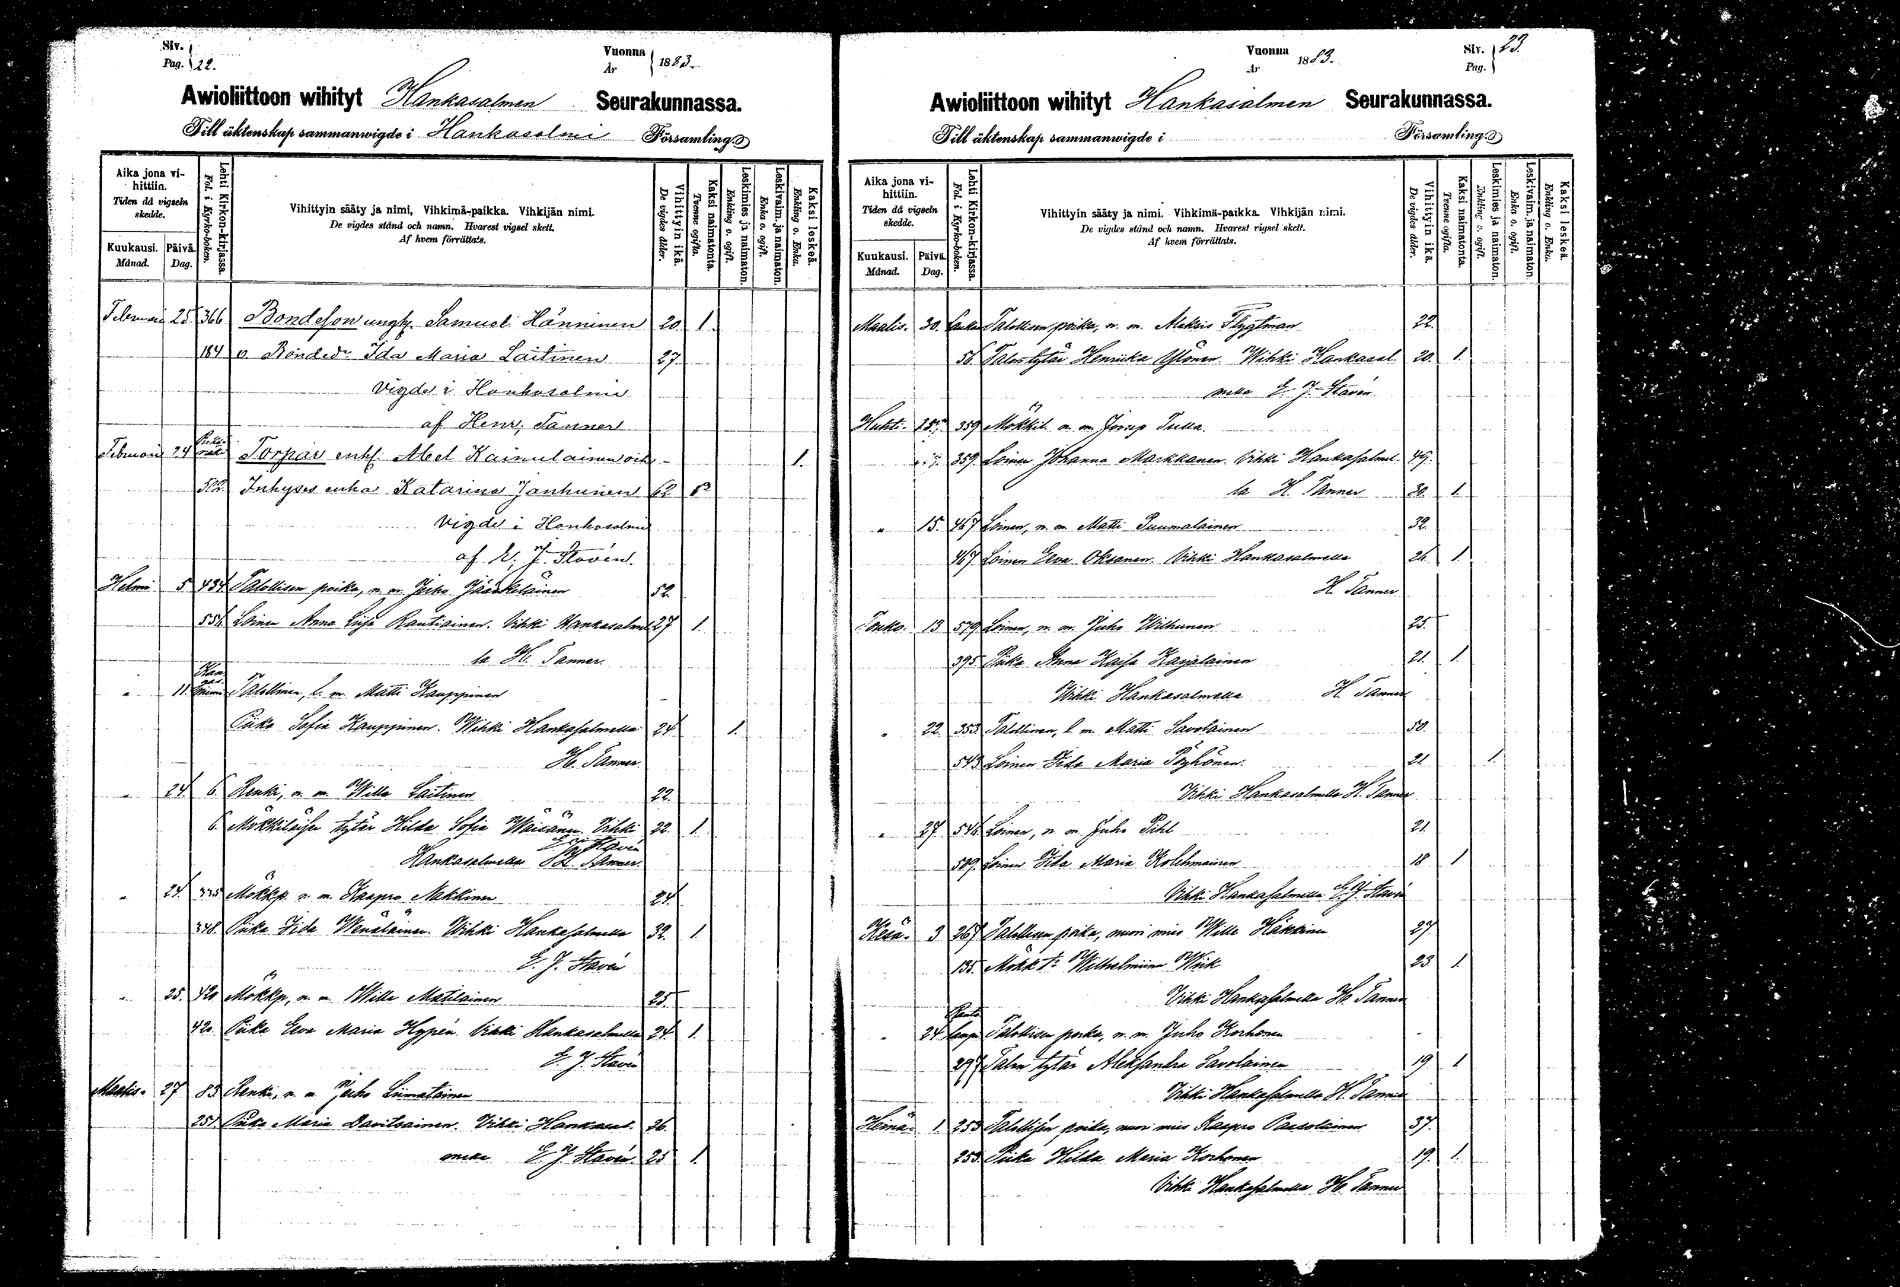 Siv.
Pag. 22.
Vuonna
År 1883.
Awioliittoon wihityt Hankasalmen Seurakunnassa.
Till äktenskap sammanwigde i Hankasalmi Församling.
Aika jona vihittiin.
Tiden då vigseln skedde.
Kuukausi. Månad.
Päivä. Dag.
Lehti Kirkon-kirjassa. Fol. i Kyrko-boken.
Vihittyin sääty ja nimi, Vihkimä-paikka. Vihkijän nimi.
De vigdes stånd och namn. Hvarest vigsel skett.
Af hvem förrättats.
Vihittyin ikä. De vigdes ålder.
Kaksi naimatonta. Tvenne ogifta.
Leskimies ja naimaton. Enkling o. ogift.
Leskivaim. ja naimaton. Enka o. ogift.
Kaksi leskeä. Enkling o. Enka.
Februari 25. 366 Bondeson ungk. Samuel Hänninen 20. 1.
184 o. Bonded. Ida Maria Laitinen 27.
Vigde i Hankasalmi
af Henr. Tanner
Februari 24 Torpar enkl. Abel Kainulainen och - 1.
522 Inhyses enka Katarina Janhunen 62
Vigde i Hankasalmi
af E. J. Stavén.
Helmi 5. 434. Talollisen poika, n. m. Juho Jääskeläinen 52.
556. Loinen Anna Liisa Rautiainen. Vihki Hankasalmel 27 1.
la H. Tanner.
" 11. Talollinen, l. m. Matti Kauppinen -
Piika Sofia Kauppinen. Wihki Hankasalmella 24 1.
H. Tanner
" 24. 6. Renki, n. m. Wille Laitinen 22.
6. Mökkiläisen tytär Hilda Sofia Wäisänen. Vihki 22. 1.
E. J. Stavén
Hankasalmella H. Tanner.
" 24. 335 Mökkp. n. m. Kaspro Nikkinen 24.
348. Piika Iida Wenäläinen. Vihki Hankasalmella 32. 1.
E. J. Stavén
" 25. 420 Mökkp, n. m. Wille Matilainen 25.
420. Piika Eva Maria Hypén. Vihki Hankasalmella 24. 1.
E. J. Stavén
Maalis. 27 83 Renki, n. m. Juho Liimatainen
254. Piika Maria Davitsainen. Vihki Hankasal- 26.
mella E J Stavén. 25 1.
Vuonna
År 1883.
Siv.
Pag. 23.
Awioliittoon wihityt Hankasalmen Seurakunnassa.
Till äktenskap sammanwigde i Församling.
Aika jona vihittiin.
Tiden då vigseln skedde.
Kuukausi. Månad.
Päivä. Dag.
Lehti Kirkon-kirjassa. Fol. i Kyrko-boken.
Vihittyin sääty ja nimi. Vihkimä-paikka. Vihkijän nimi.
De vigdes stånd och namn. Hvarest vigsel skett.
Af hvem förrättats.
Vihittyin ikä. De vigdes ålder.
Kaksi naimatonta. Tvenne ogifta.
Leskimies ja naimaton. Enkling o. ogift.
Leskivaim. ja naimaton. Enka o. ogift.
Kaksi leskeä. Enkling o. Enka.
Maalis. 30. Talollisen poika, n. m. Aleksis Flygtman 22.
56. Talon tytär Henrika Ylönen Wihki Hankasal 20. 1.
mella E. J. Stavén
Huhti. 359 Mökkil. n. m. Joosep Tulla.
359. Loinen Johanna Markkanen. Vihki Hankasalmel 49.
la H. Tanner 30. 1.
" 15. 467 Loinen, n. m. Matti Puumalainen 32.
467 Loinen Eva Oksanen. Vihki Hankasalmella 26. 1.
H. Tanner
Touko. 13. 579 Loinen, n. m. Juho Wilhunen 25.
395. Piika Anna Kaisa Karjalainen 21. 1.
Wihki Hankasalmella H. Tanner
" 22. 353. Talollinen, l. m. Matti Savolainen 50.
543 Loinen Iida Maria Pöyhönen. 21 1.
Vihki Hankasalmella H. Tanner
" 27 546. Loinen, n. m. Juho Pihl 21.
589. Loinen Iida Maria Kolehmainen 18 1
Vihki Hankasalmella E. J. Stavén
Kesä. 3 267 Talollisen poika, nuori mies Wille Häkkinen 27
135. Mökk. t. Wilhelmiina Wiik 23 1.
Vihki Hankasalmella H. Tanner
" 24 Rautalampi Talollisen poika, n. m. Juho Korhonen -
297 Talon tytär Aleksandra Savolainen 19 1
Vihki Hankasalmella H. Tanner
Heinä. 1. 253 Talollisen poika, nuori mies Kaspro Paasolainen 37.
253. Piika Hilda Maria Korhonen 19. 1.
Vihki Hankasalmella H. Tanner